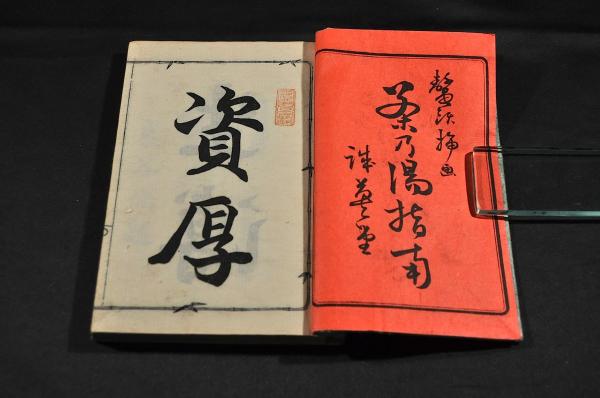 鼇頭挿画
茶乃湯指南
資厚